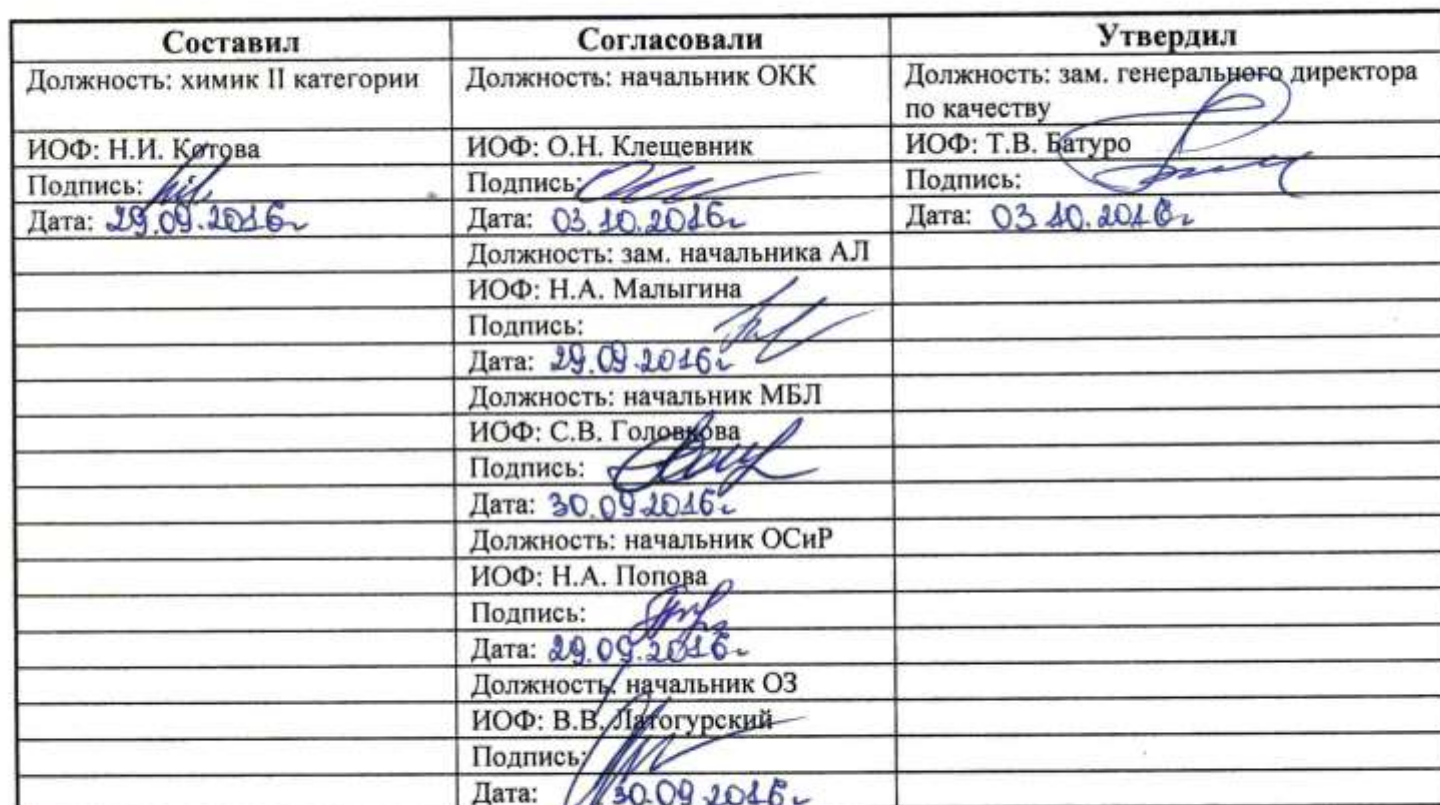 Составил Согласовали Утвердил
Должность: химик II категории Должность: начальник ОКК Должность: зам. генерального директора
по качеству
ИОФ: Н.И. Котова ИОФ: О.Н. Клещевник ИОФ: Т.В. Батуро
Подпись: Подпись: Подпись:
Дата: 29.09.2016г Дата: 03.10.2016г Дата: 03.10.2016г
Должность: зам. начальника АЛ
ИОФ: Н.А. Малыгина
Подпись:
Дата: 29.09.2016г
Должность: начальник МБЛ
ИОФ: С.В. Головкова
Подпись:
Дата: 30.09.2016г
Должность: начальник ОСиР
ИОФ: Н.А. Попова
Подпись:
Дата: 29.09.2016г
Должность: начальник ОЗ
ИОФ: В.В. Латогурский
Подпись:
Дата: 30.09.2016г